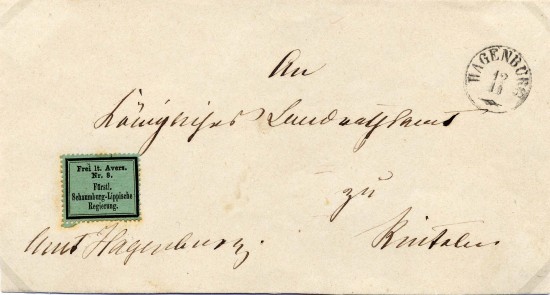 An
HAGENBURG
12
11
Königliches Landrathsamt
Frei lt. Avers.
Nr. 8.
Fürstl.
Schaumburg-Lippische
Regierung.
zu
Amt Hagenburg.
Rinteln